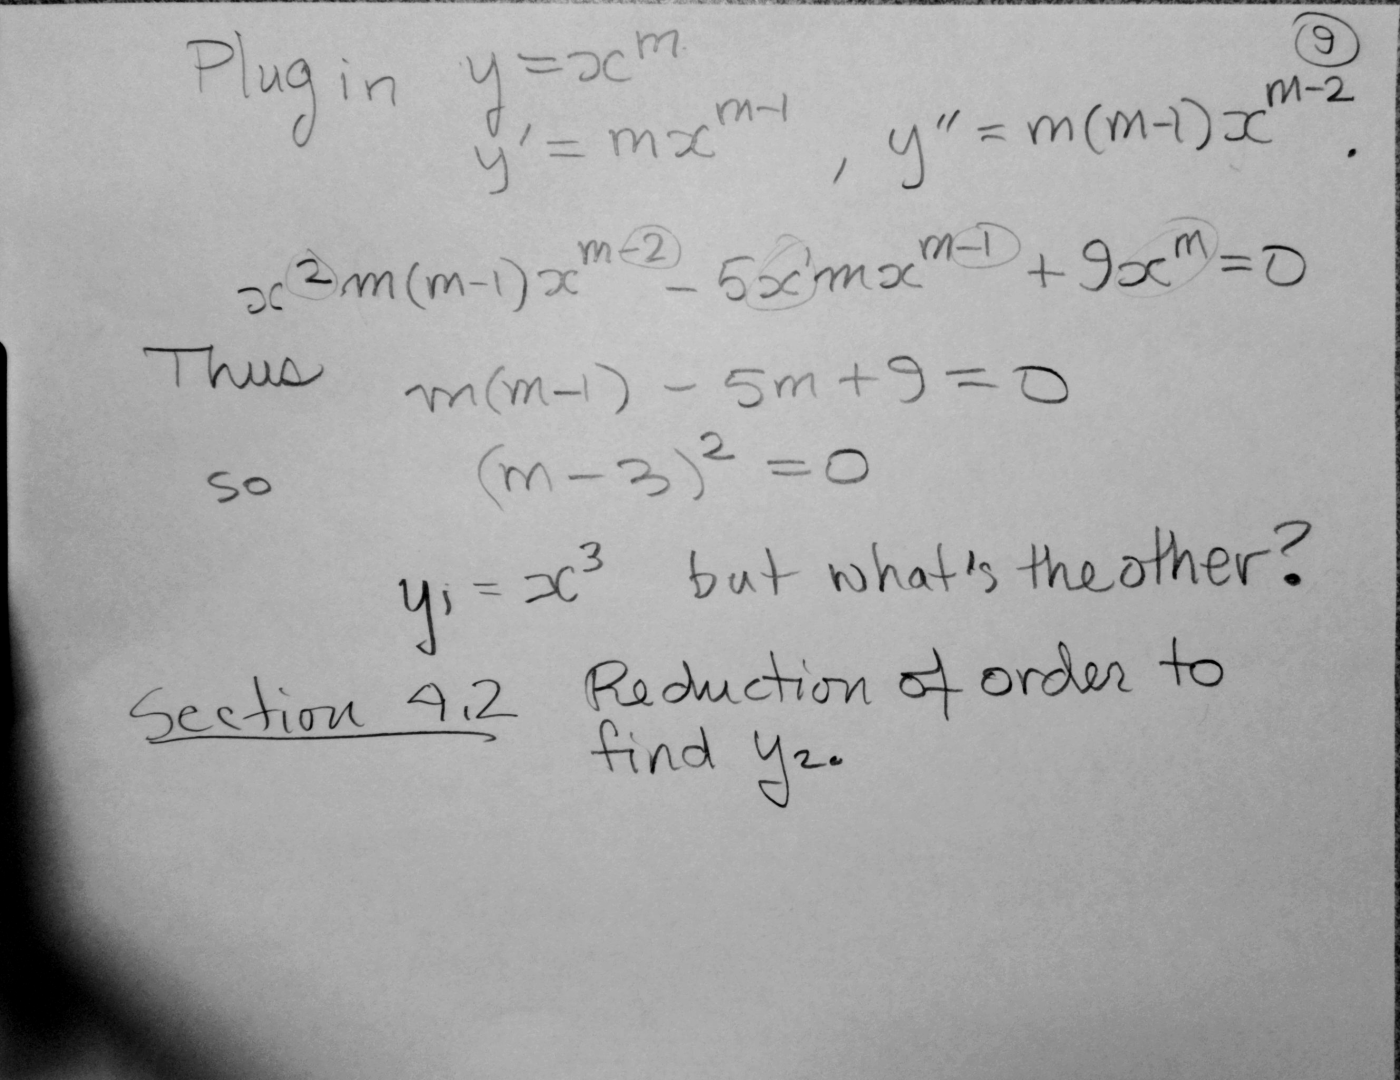 9
Plug in y = x^m
y' = mx^{m-1}, y'' = m(m-1)x^{m-2}.
x^2 m(m-1)x^{m-2} - 5x^1 mx^{m-1} + 9x^m = 0
Thus m(m-1) - 5m + 9 = 0
so (m-3)^2 = 0
y_1 = x^3 but what's the other?
Section 4.2 Reduction of order to
find y_2.